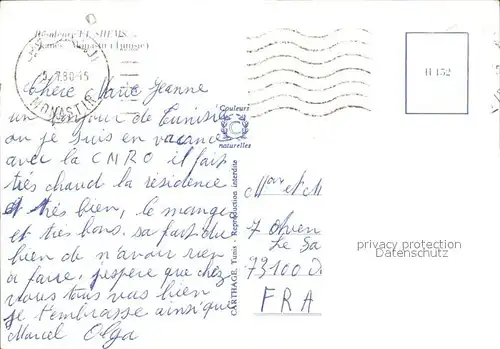 Résidence EL SHEMS
Skanès Monastir (Tunisie)
MONASTIR
Chère Marie Jeanne
un bonjour de Tunisie
ou je suis en vacance
avec la CNRO il fait
très chaud la résidence
et très bien, le mange
et très bons. sa fait du
bien de n'avoir rien
a faire, j'espère que chez
vous tous vas bien
je t'embrasse ainsi que
Marcel Olga
Couleurs
naturelles
CARTHAGE, Tunis - Reproduction interdite
H 152
Mr et M
7
Le Sa
73100
FRA
privacy protection
Datenschutz